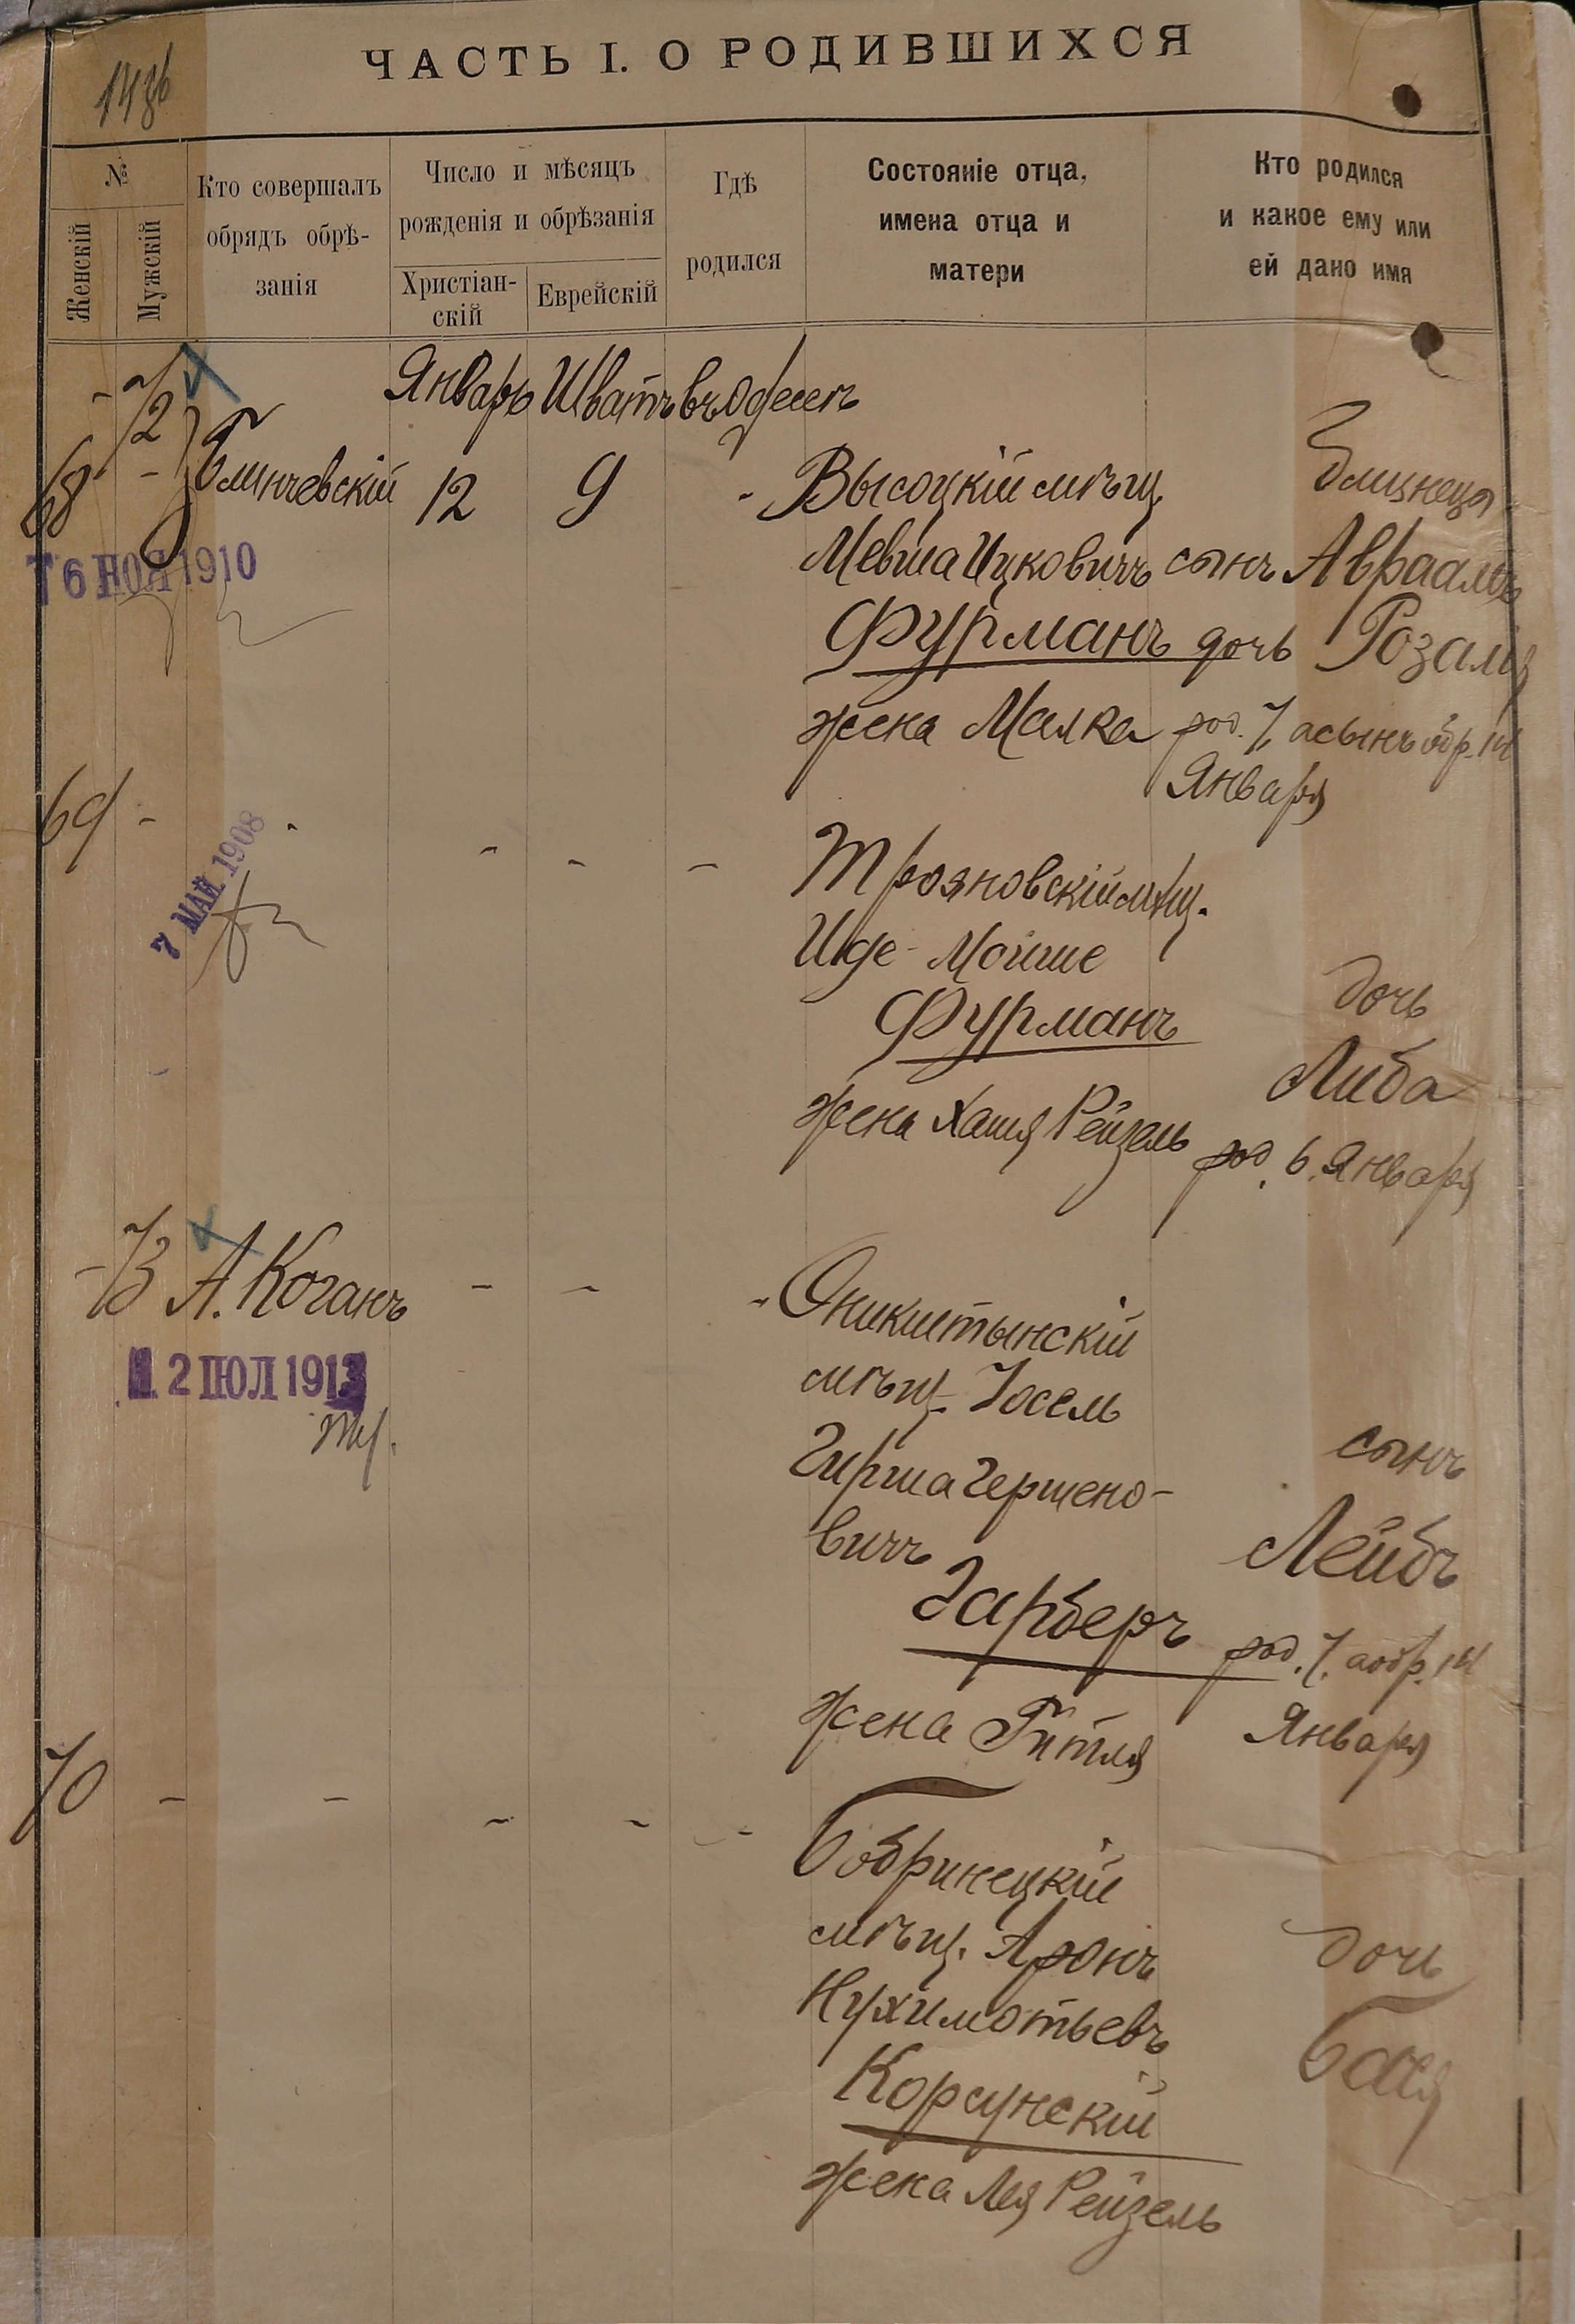 ЧАСТЬ I. О РОДИВШИХСЯ
№
Женскій
Мужскій
Кто совершалъ
обрядъ обрѣ-
занія
Число и мѣсяцъ
рожденія и обрѣзанія
Христіан-
скій
Еврейскій
Гдѣ
родился
Состояніе отца,
имена отца и
матери
Кто родился
и какое ему или
ей дано имя
Январь Шватъ въ Одессѣ
- 72
68 - Блинчевскій 12 9 - Высоцкій мѣщ. близнецы
Мевша Ицковичъ сынъ Авраамъ
Фурманъ дочь Розалія
жена Малка род. 7, а сынъ обр. 14
Января
НОЯ 1910
69 - - - - - Трояновскій мѣщ.
Иде-Мойше
Фурманъ дочь
Либа
жена Хася Рейзель род. 6. Января
7 МАЙ 1908
- 73 А. Коганъ - - - Оникштынскій
мѣщ. Іосель
Гирша Гершено-
вичъ сынъ
Лейбъ
Гарберъ род. 7. а обр. 14
жена Гитля Января
2 ІЮЛ 1913
70 - - - - - Бобринецкій
мѣщ. Аронъ дочь
Нухимотьевъ Бася
Корсунскій
жена Лея Рейзель